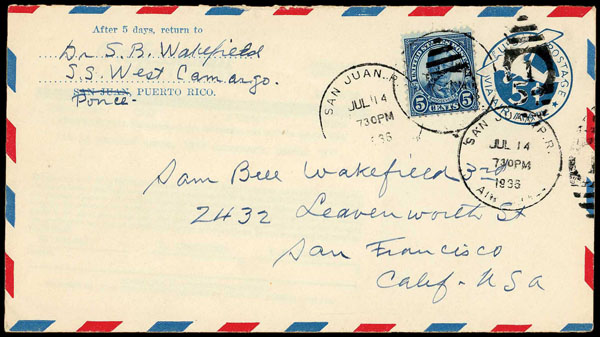 After 5 days, return to
Dr S. B. Wakefield
S.S. West Camargo.
SAN JUAN, PUERTO RICO.
Ponce-
UNITED STATES POSTAGE
5 CENTS 5
SAN JUAN, P.R.
JUL 14
730PM
1936
POSTAGE
5
SAN JUAN, P.R.
JUL 14
730PM
1936
AIR
Sam Bell Wakefield 3rd
2432 Leavenworth St
San Francisco
Calif- USA